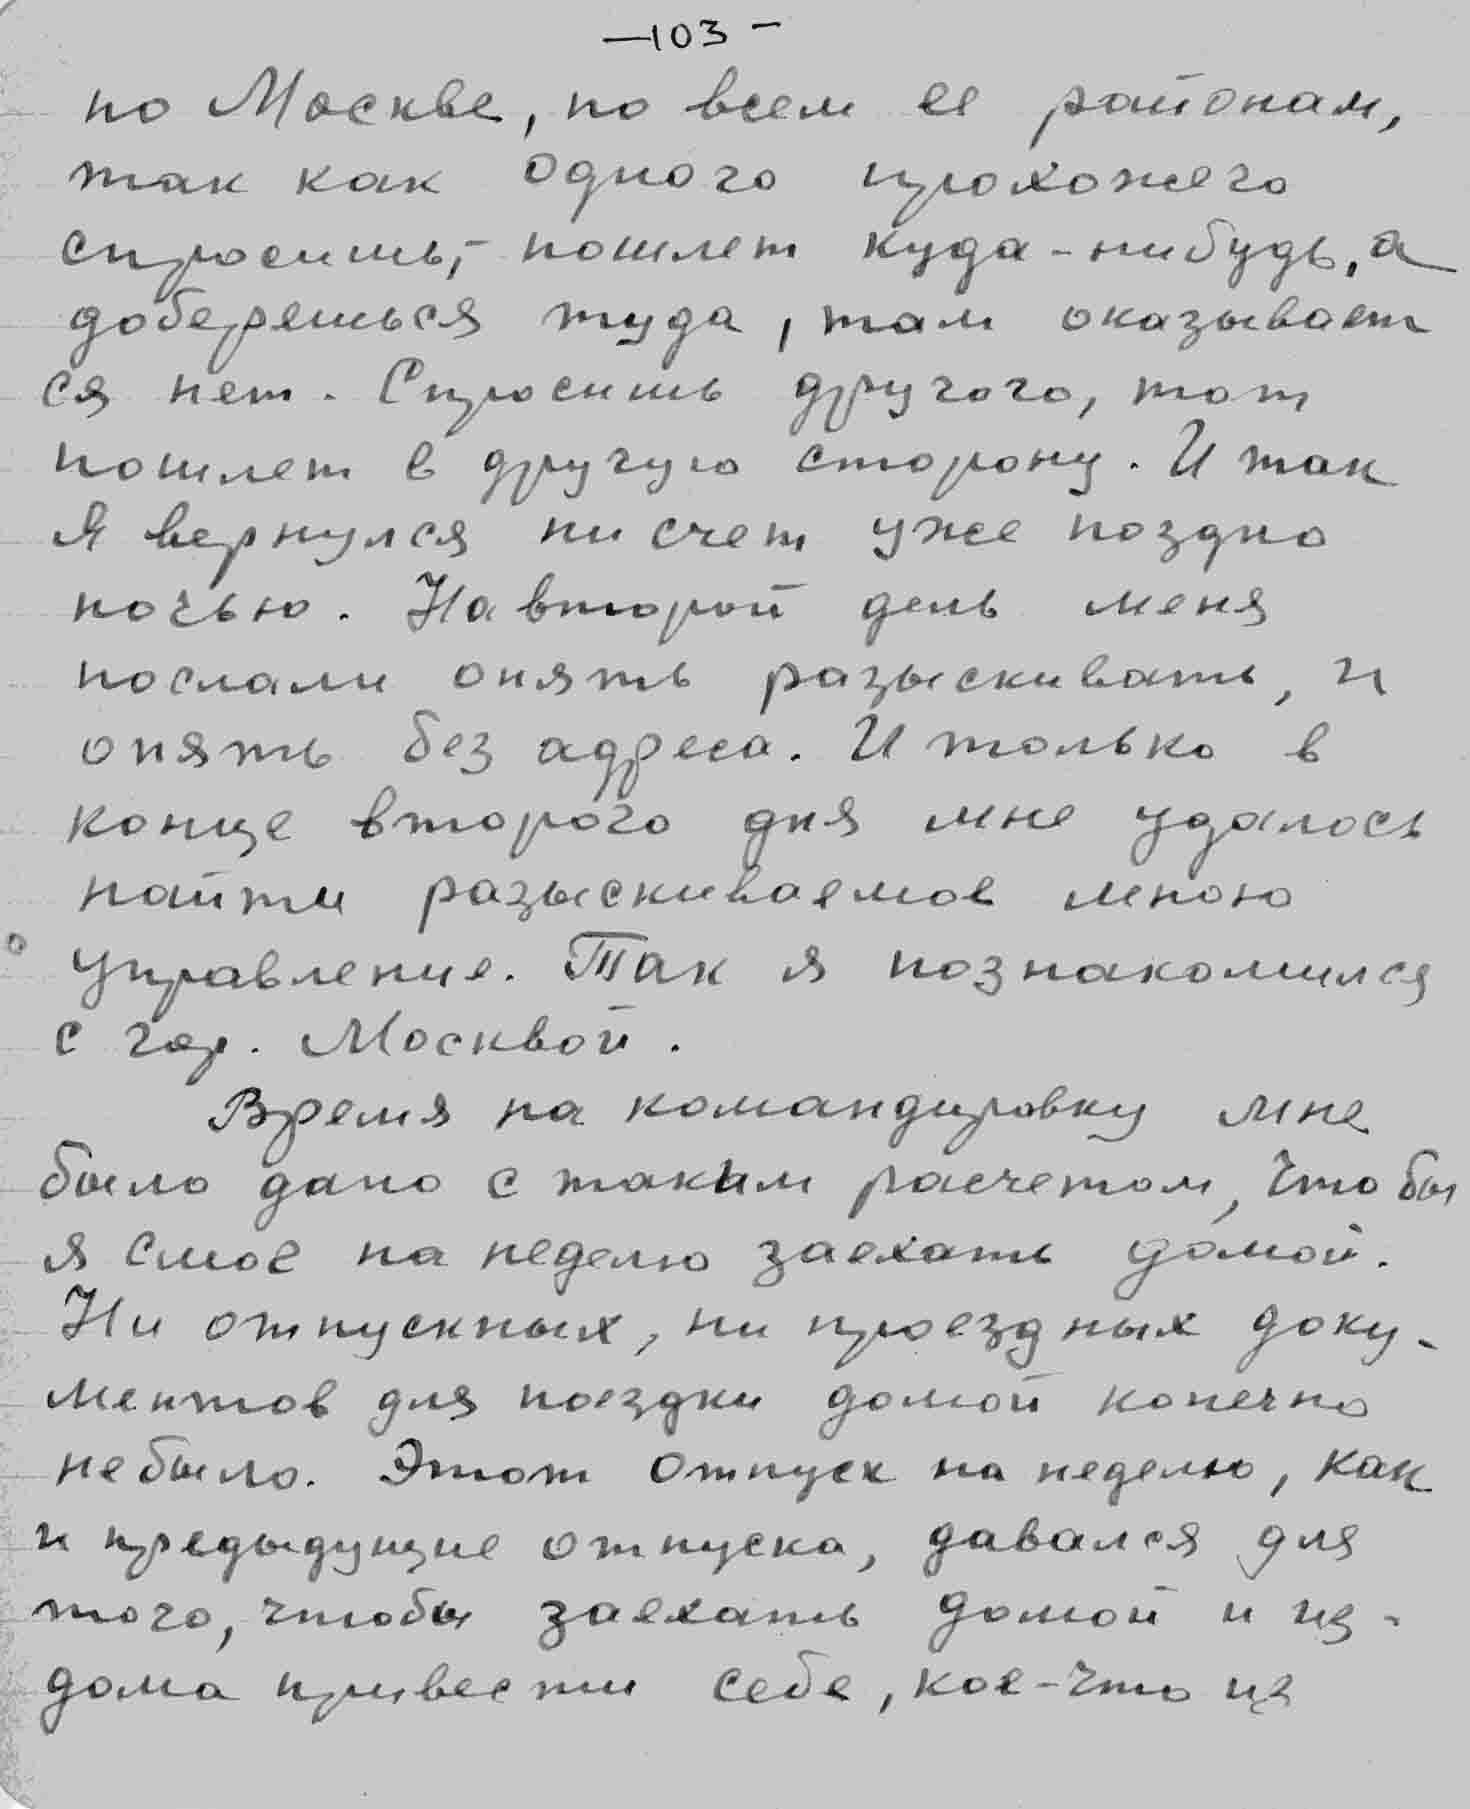 —103—
по Москве, по всем ее районам,
так как одного прохожего
спросишь,- пошлет куда-нибудь, а
доберешься туда, там оказывает
ся нет. Спросишь другого, тот
пошлет в другую сторону. И так
я вернулся ни счем уже поздно
ночью. На второй день меня
послали опять разыскивать, и
опять без адреса. И только в
конце второго дня мне удалось
найти разыскиваемое мною
управление. Так я познакомился
с гор. Москвой.
Время на командировку мне
было дано с таким расчетом, что бы
я смог на неделю заехать домой.
Ни отпускных, ни проездных доку-
ментов для поездки домой конечно
не было. Этот отпуск на неделю, как
и предыдущие отпуска, давался для
того, чтобы заехать домой и из-
дома привести себе, кое-что из